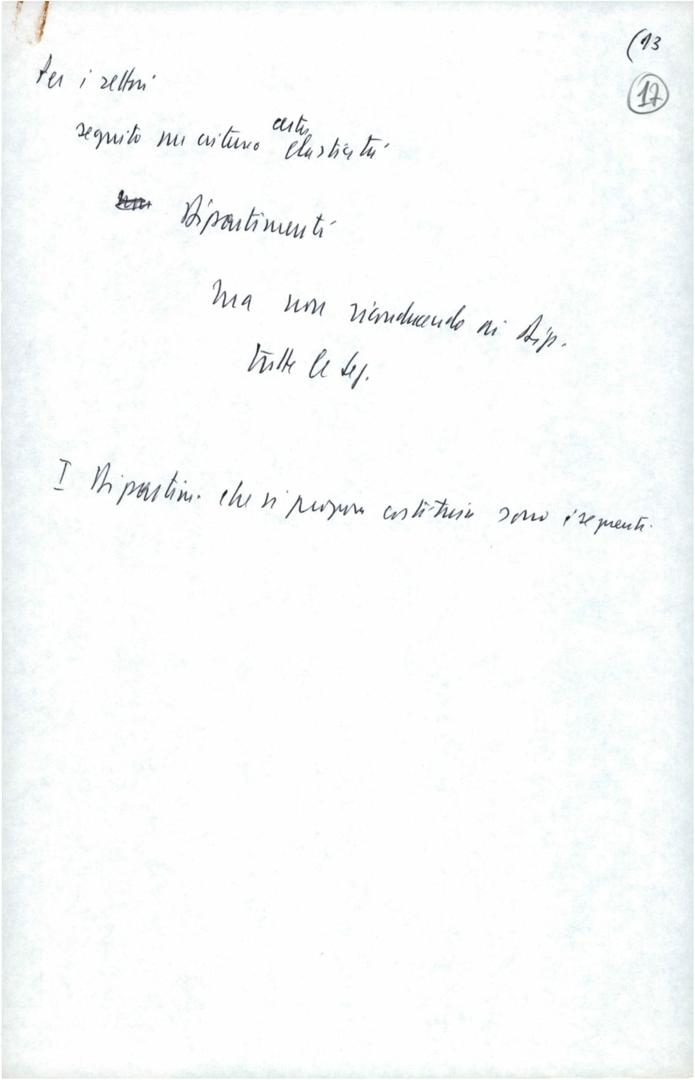 (13
17
Per i settori
seguito un criterio certa elasticità
Dipartimenti
ma non riconducendo ai Dip.
tutte le Seg.
I Dipartim. che si propone costituire sono i seguenti.